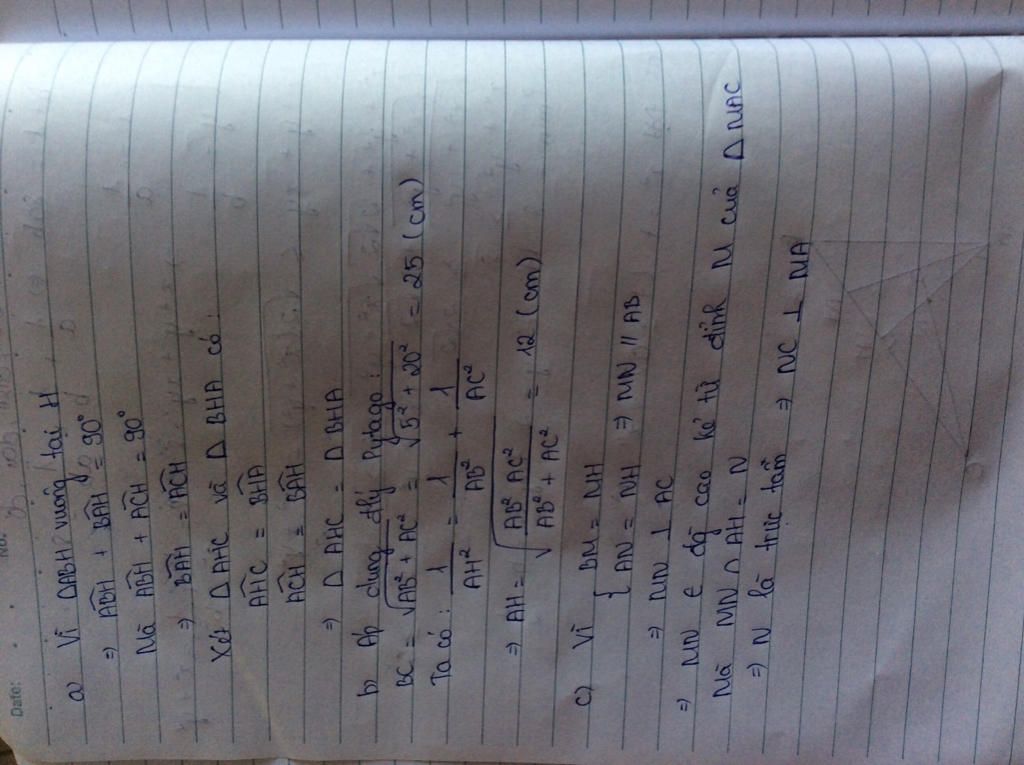 Date:
No.
a) Vì ΔABH vuông tại H
⇒ ABH + BAH = 90°
Mà ABH + ACH = 90°
⇒ BAH = ACH
Xét Δ AHC và Δ BHA có:
AHC = BHA
ACH = BAH
⇒ Δ AHC = Δ BHA
b) Áp dụng đlý Pytago:
BC = √AB² + AC² = √5² + 20² = 25 (cm)
Ta có: 1/AH² = 1/AB² + 1/AC²
⇒ AH = √AB² AC² / AB² + AC² = 12 (cm)
c) Vì { BM = MH
AN = NH ⇒ MN // AB
⇒ MN ⊥ AC
⇒ MN ∈ đg cao kẻ từ đỉnh M của Δ MAC
Mà MN ∩ AH = N
⇒ N là trực tâm ⇒ NC ⊥ MA